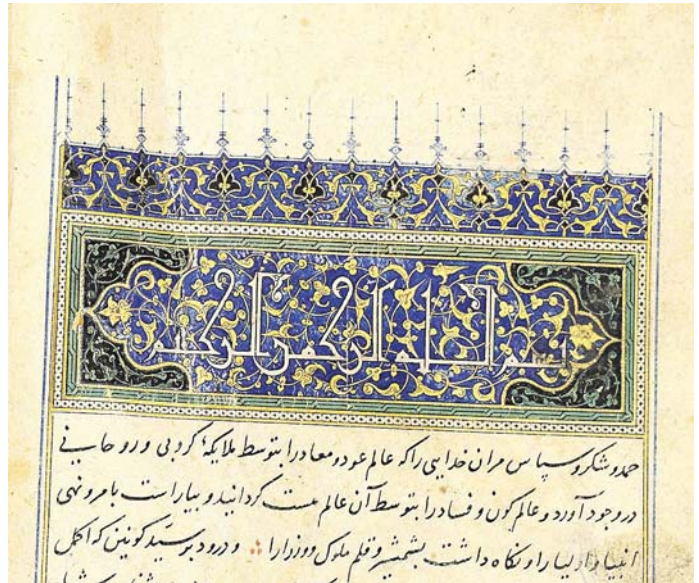 بسم الله الرحمن الرحیم
حمد و شکر و سپاس مران خدایی را که عالم عود و معاد را بتوسط ملایکهٔ کروبی و روحانی
در وجود آورد و عالم کون و فساد را بتوسط آن عالم هست کردانید و بیاراست بامر و نهی
انبیا و اولیا را و نکاه داشت بشمشیر و قلم ملوک و وزرا را و درود بر سید کونین که اکمل